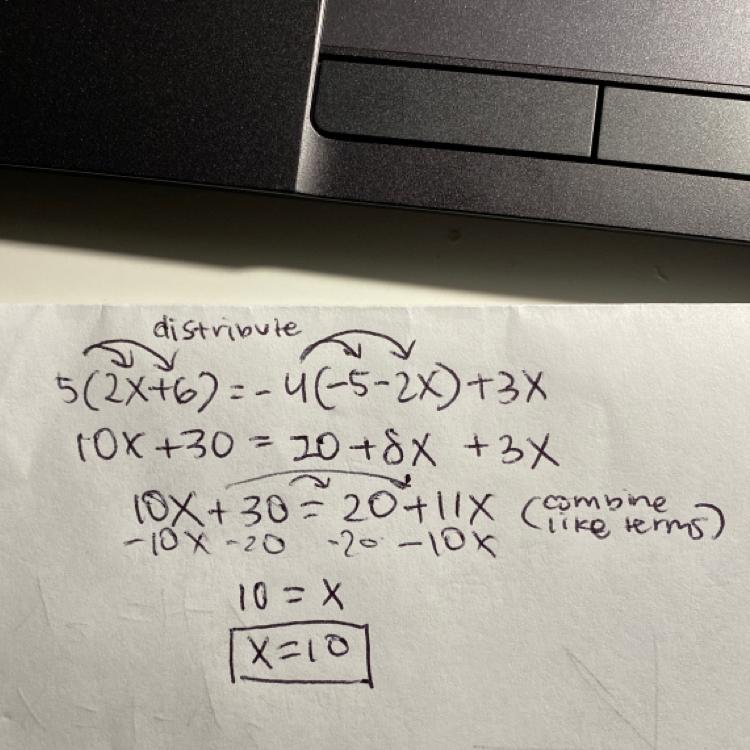 distribute
5(2x+6)=-4(-5-2x)+3x
10x+30=20+8x+3x
10x+30=20+11x (combine like terms)
-10x -20 -20 -10x
10=x
x=10